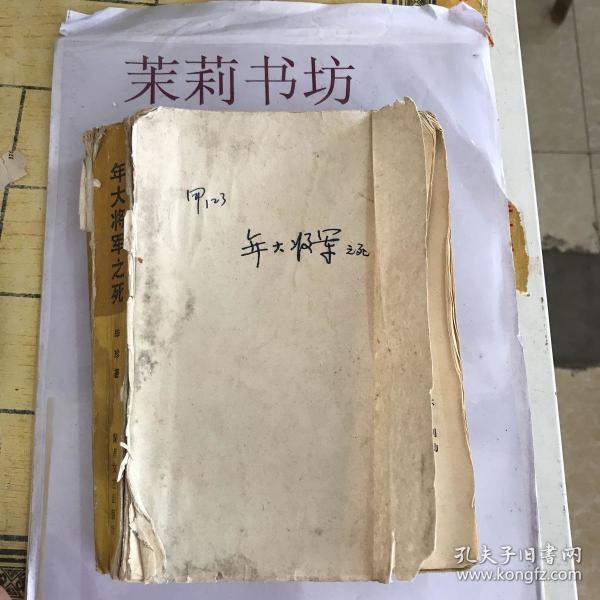 茉莉书坊
年大将军之死
毕珍著
甲123
年大将军之死
孔夫子旧书网
www.kongfz.com